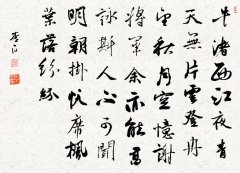 牛渚西江夜青
天無片雲登舟
望秋月空憶謝
將軍余亦能高
詠斯人不可聞
明朝掛帆席楓
葉落紛紛